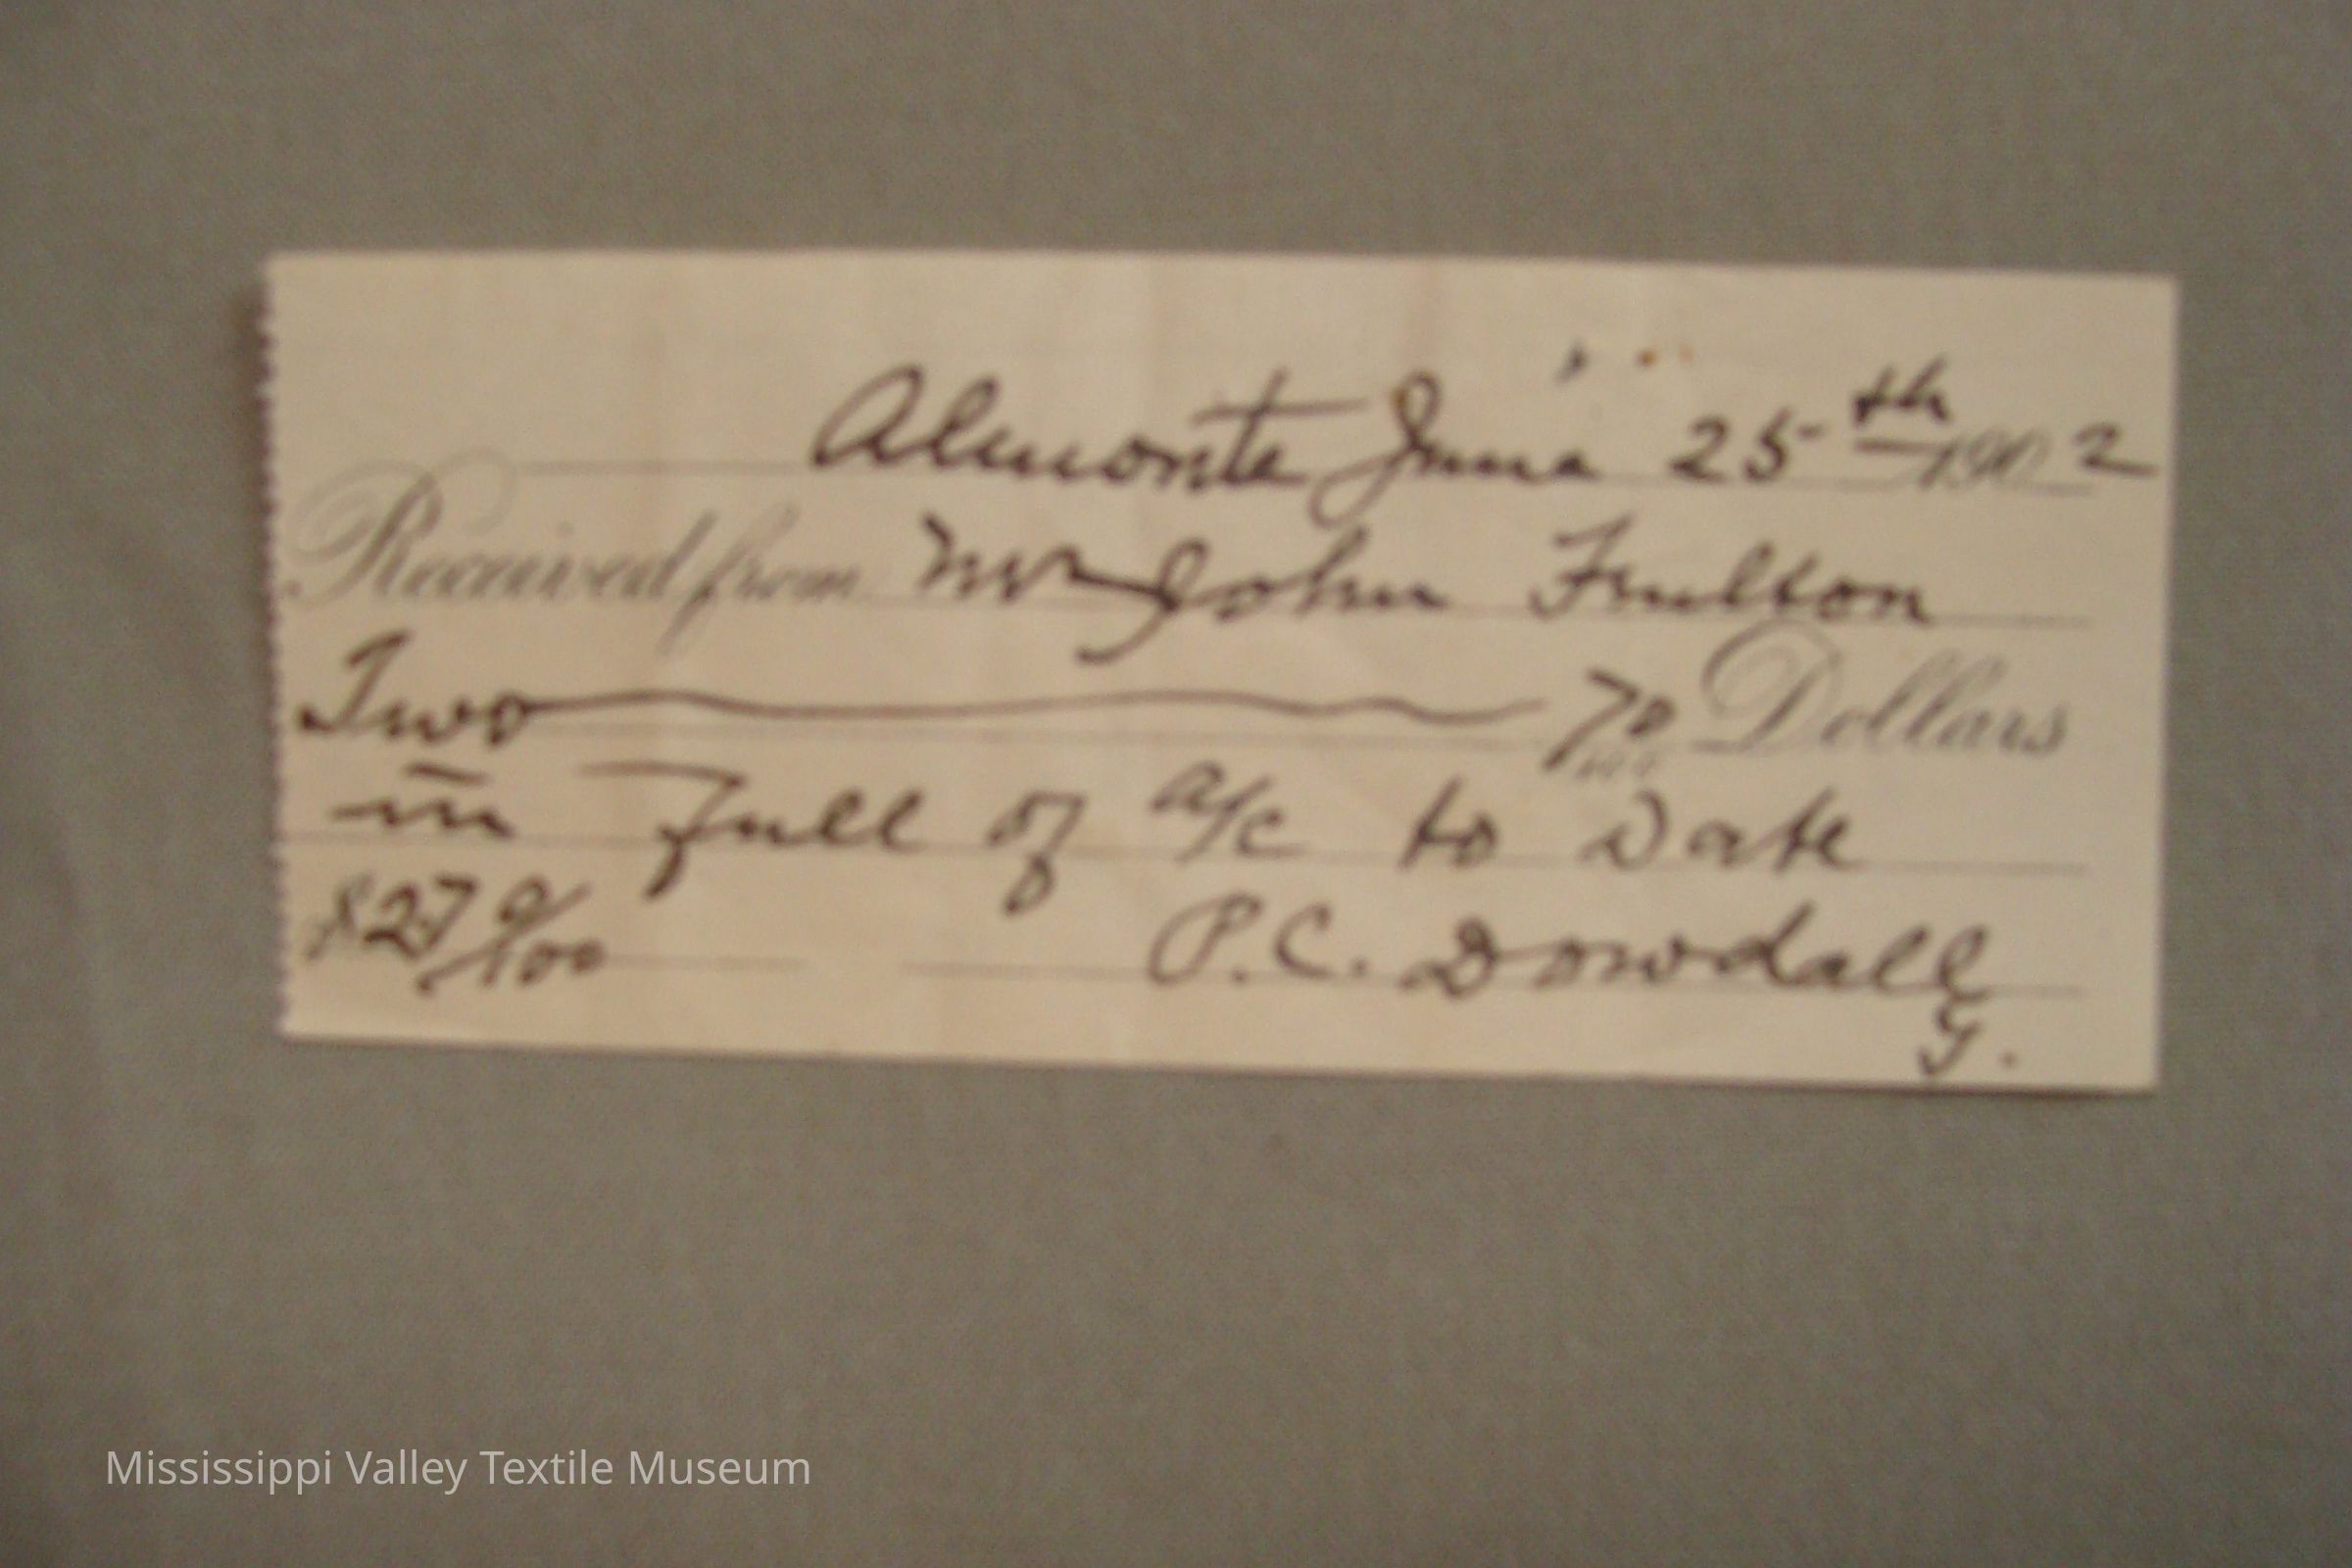 Almonte June 25th 1902
Received from Mr John Fulton
Two 70/100 Dollars
in full of a/c to Date
$2 70/100 P.C. Dowdall
G.
Mississippi Valley Textile Museum